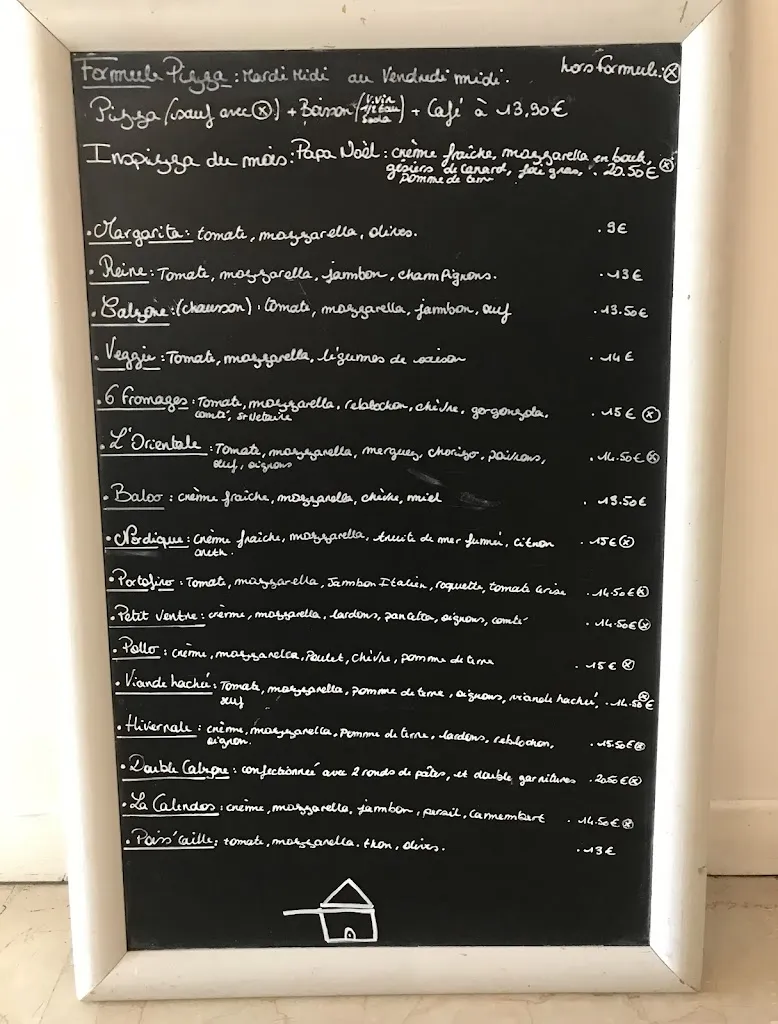 Formule Pizza : Mardi Midi au Vendredi midi. hors formule : ⓧ
Pizza (sauf avec ⓧ) + Boisson (V. Vin 1/2 Eau Soda) + Café à 13,90€
Inspizza du mois : Papa Noël : crème fraîche, mozzarella en boule,
gésiers de canard, foie gras, . 20.50€ ⓧ
pomme de terre
. Margarita : tomate, mozzarella, olives. . 9€
. Reine : Tomate, mozzarella, jambon, champignons. . 13€
. Calzone : (chausson) : tomate, mozzarella, jambon, œuf . 13.50€
. Veggie : Tomate, mozzarella, légumes de saison . 14€
. 6 Fromages : Tomate, mozzarella, reblochon, chèvre, gorgonzola, . 15€ ⓧ
comté, St Nectaire
. L'Orientale : Tomate, mozzarella, merguez, chorizo, poivrons, . 14.50€ ⓧ
œuf, oignons
. Baloo : crème fraîche, mozzarella, chèvre, miel . 13.50€
. Nordique : crème fraîche, mozzarella, truite de mer fumée, citron . 15€ ⓧ
aneth.
. Portofino : Tomate, mozzarella, Jambon Italien, roquette, tomate cerise . 14.50€ ⓧ
. Petit ventre : crème, mozzarella, lardons, pancetta, oignons, comté . 14.50€ ⓧ
. Pollo : crème, mozzarella, Poulet, chèvre, pomme de terre . 15€ ⓧ
. Viande hachée : Tomate, mozzarella, pomme de terre, oignons, viande hachée, . 14.50€ ⓧ
œuf
. Hivernale : crème, mozzarella, Pomme de terre, lardons, reblochon, . 15.50€ ⓧ
oignon.
. Double Calzone : confectionnée avec 2 ronds de pâtes, et double garnitures . 20.50€ ⓧ
. La Calendos : crème, mozzarella, jambon, persil, camembert . 14.50€ ⓧ
. Poiss'caille : tomate, mozzarella. thon, olives. . 13€